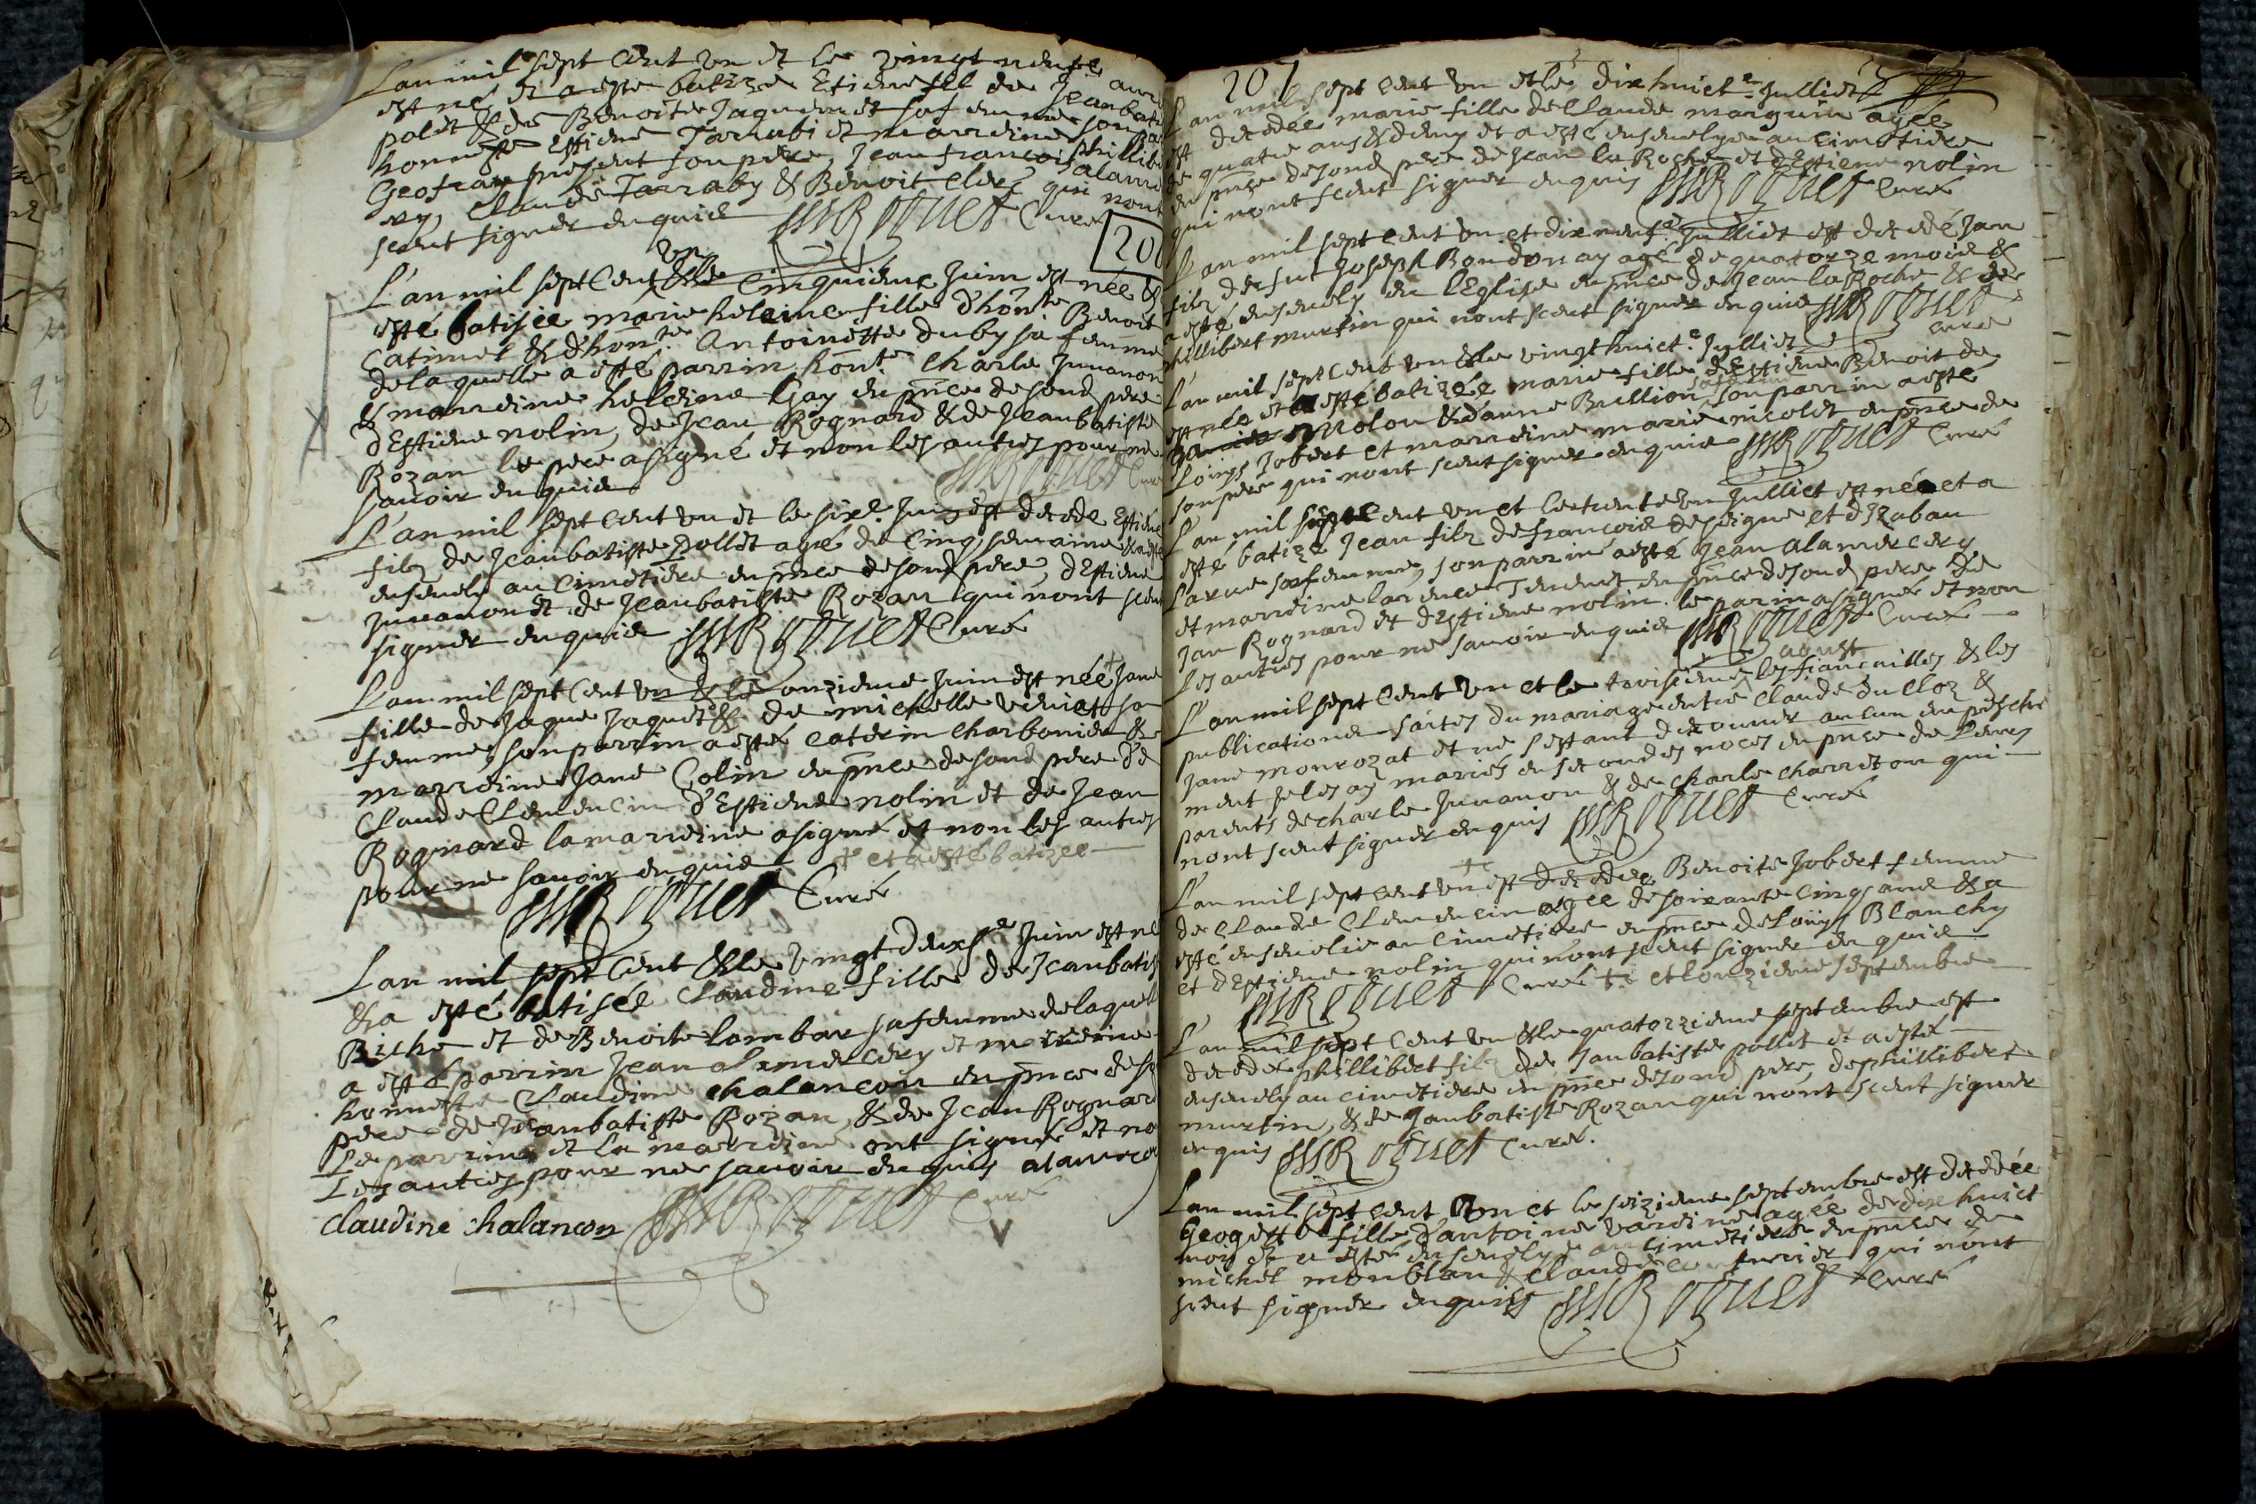 L'an mil sept cent un et le vingt neufe avril
est né et a este batize Etiene fil de Jeanbati
polet & de Benoite Jaquemet sa femme son pa
honneste Estiene Tarrabi et marreine phillibe
Geofray present son pere, Jean francois alame
ry, Claude Tarraby & Benoit Clerc qui nont
sceut signer enquis Rozuet Curé
20
L'an mil sept cent un & le cinquieme Juin est née &
esté batisée marie heleine fille d'hon.te Benoit
Catimel & d'hon.te Antoinette duby sa femme
de laquelle a esté parrin hon.te Charle Juuanon
& marreine heleine Gay en pnce de sond pere
d'Estiene nolin, de Jean Rognard & de Jeanbatiste
Rozan le pere a signé et non les autres pour ne
sauoir enquis Rozuet Cur
L'an mil sept cent un et le sixe Juin est decede Estiene
filz de Jeanbatiste pollet agé de cinq semaine & a esté
enseuely au cimetiere en pnce de sond pere, d'Estiene
Juuanon et de Jeanbatiste Rozan qui nont sceu
signer enquis Rozuet Curé
L'an mil sept cent un & le onzieme Juin est née + Jane
fille de Jaque Jaquet & de michelle sa
femme, son parrin a esté caterin charbonier &
marreine Jane Colin en pnce de sond pere de
Claude Clemencin d'Estiene nolin et de Jean
Rognard la marreine a signé et non les autres
pour ne sauoir enquis + et a esté batizee
Rozuet Curé
L'an mil sept cent & le vingt deuxse Juin est né
& a esté batisée Claudine fille de Jeanbatis
Biche et de Benoite lambar sa femme de laquel
a esté parrin Jean alamercery et marreine
honneste Claudine chalancon en pnce de so
pere de Jeanbatiste Rozan, & de Jean Rognar
Le parrin et la marreine ont signé et no
Les autres pour ne sauoir enquis alamerce
claudine chalancon Rozuet Curé
201
L'an mil sept cent un et le dixhuicte Julliet
est decedee marie fille de Claude marguin agée
de quatre ans & demy et a esté enseuelye au cimetiere
en pnce de sond pere de Jean la Roche et d'Estiene nolin
qui nont sceut signer enquis Rozuet Curé
L'an mil sept cent un et dixneufe Julliet est decedé Jan
filz de fut Joseph Bondonay agé de quatorze mois &
a esté enseuely en l'Eglise en pnce de Jean la Roche & de
phillibert murtin qui nont sceut signer enquis Rozuet
Curé
L'an mil sept cent un & le vingthuicte Julliet
est née et a esté batizée marie fille d'Estiene Benoit de
Molon & d'anne Bullion sa femme son parrin a esté
Loüys Jobert et marreine marie nicolet en pnce de
son pere qui nont sceut signer enquis Rozuet Curé
L'an mil sept cent un et le trente un Julliet est né et a
esté batizé Jean filz de francois despigne et d'Izabau
Larue sa femme, son parrin a esté Jean alamercery
et marreine larence Tenenet en pnce de sond pere de
Jan Rognard et d'Estiene nolin. le parin a signé et non
Les autres pour ne sauoir enquis Rozuet Curé
L'an mil sept cent un et le troisieme aoust les fiancailles & les
publications faites du mariage entre Claude du Cloz &
Jane monrozat et ne sestant decouuer aucun empesche
ment je les ay mariés en secondes noces en pnce de Leurs
parents de charle Juuanon & de charle charreton qui
nont sceut signer enquis Rozuet Curé
L'an mil sept cent un + est decedee Benoite Jobert femme
de Claude Clemencin agee de soixante cinq ans & a
esté enseuelie au cimetiere en pnce de Loüys Blanchy
et d'Estiene nolin qui nont sceut signer enquis
Rozuet Curé + et lonzieme septembre
L'an mil sept cent un & le quatorzieme septembre est
decedé phillibert filz de Janbatiste pollet et a esté
enseuely au cimetiere en pnce de sond pere, de phillibert
murtin, & de Janbatiste Rozan qui nont sceut signer
enquis Rozuet Curé.
L'an mil sept cent un et le seizieme septembre est decedée
Geogette fille d'antoine agée de dixhuict
mois et a esté enseuelye au cimetiere en pnce de
michel monblan & Claude qui nont
sceut signer enquis Rozuet Curé